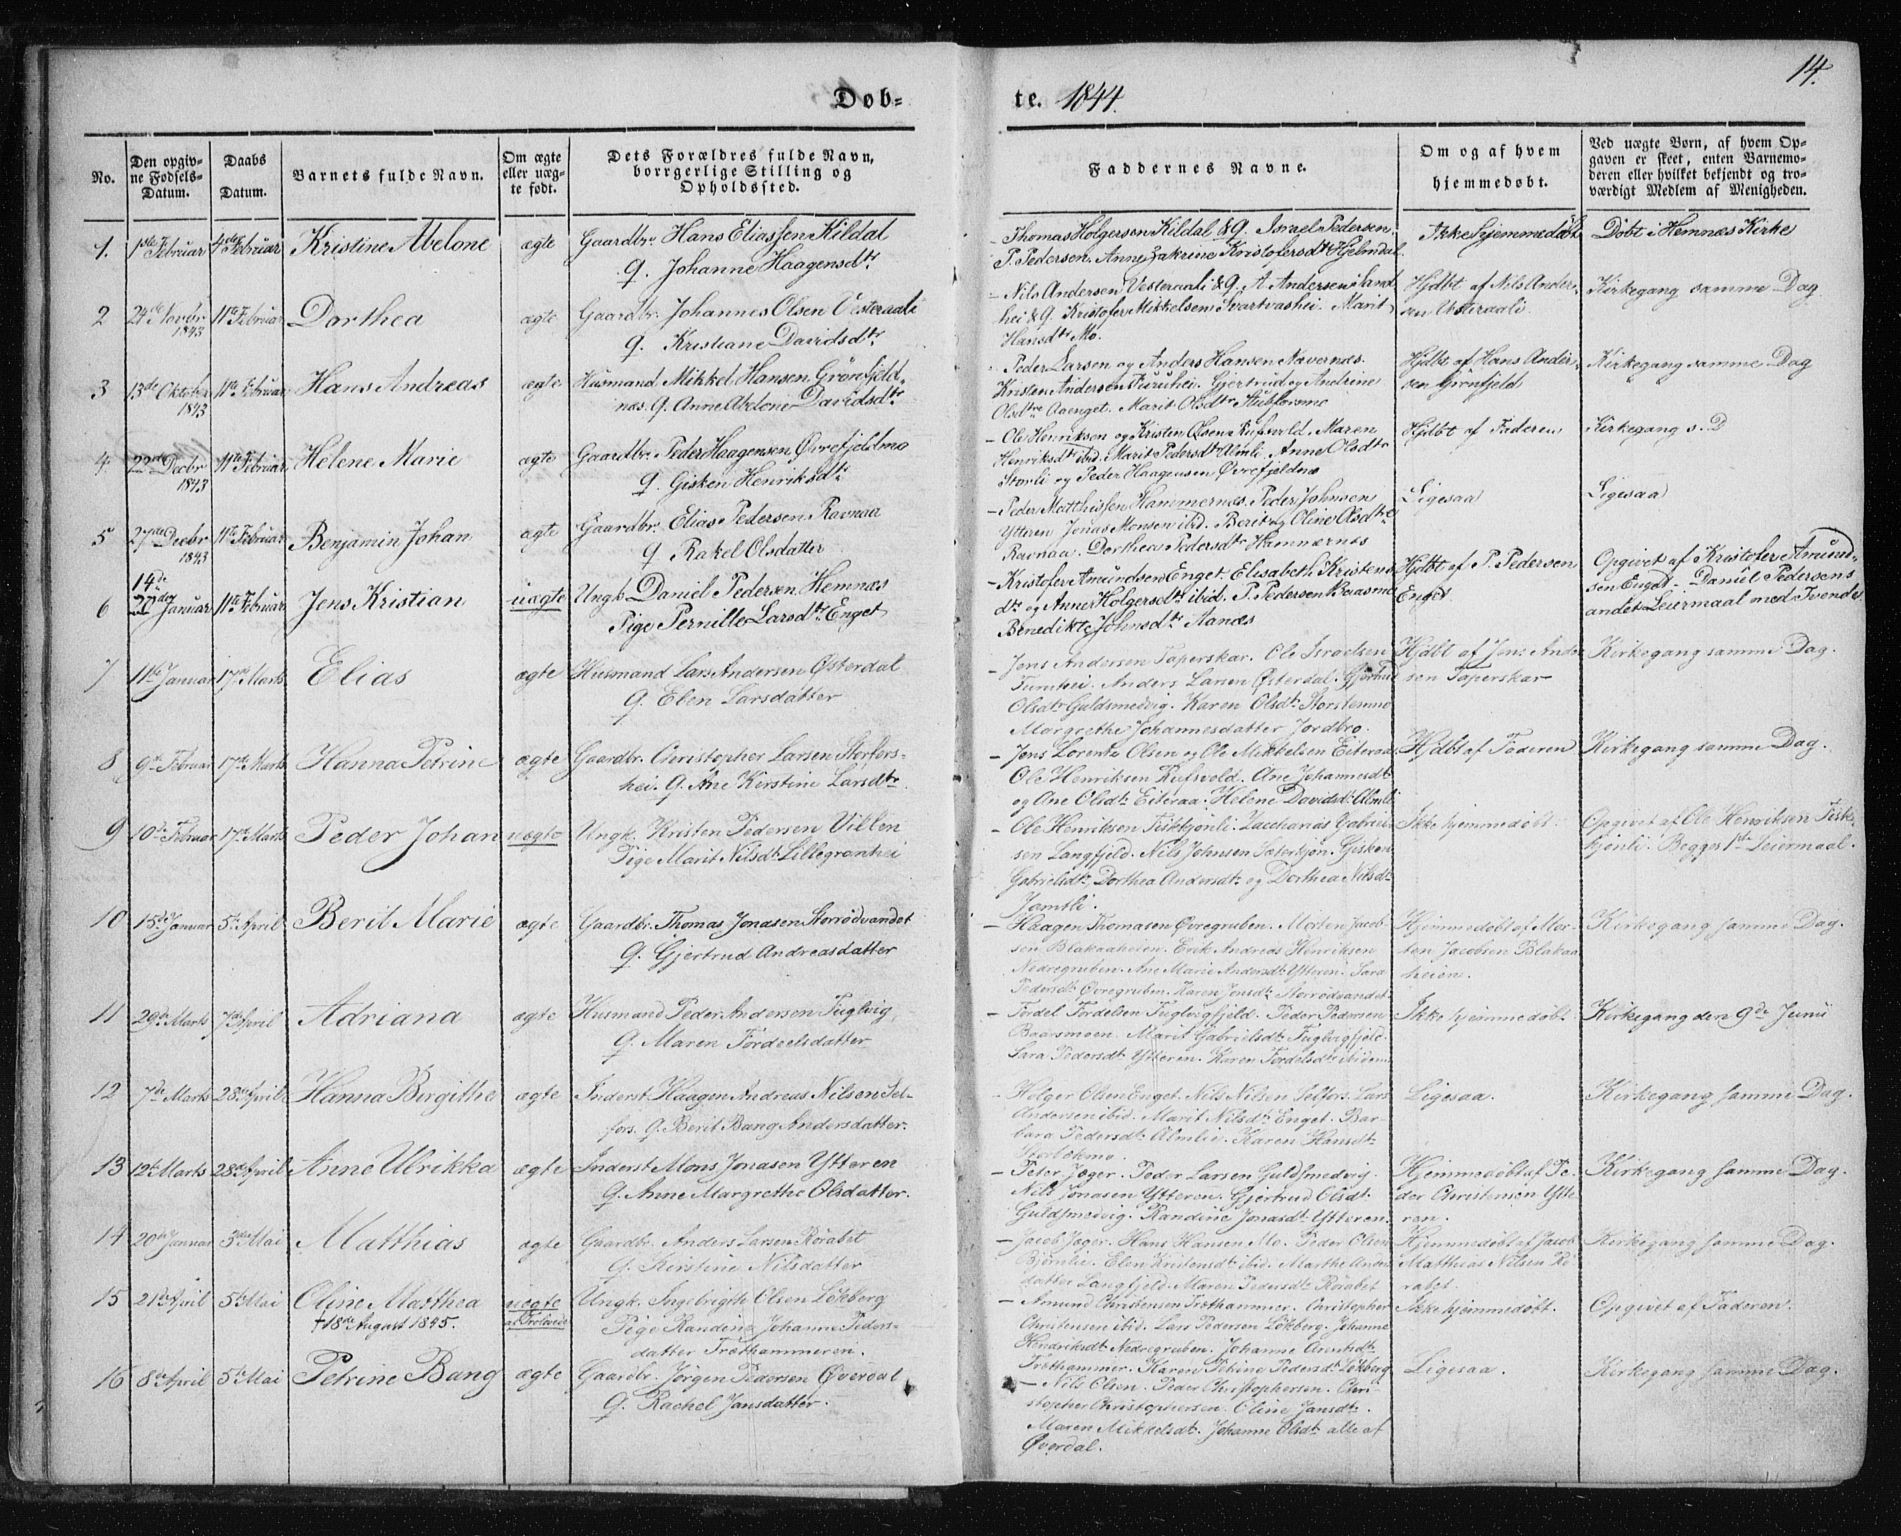 14.
Døb-
te. 1844.
No.
Den opgiv-
ne Fødsels-
Datum.
Daabs
Datum.
Barnets fulde Navn.
Om ægte
eller uæg-
te født.
Dets Forældres fulde Navn,
borrgerlige Stilling og
Opholdssted.
Faddernes Navne.
Om og af hvem
hjemmedøbt.
Ved uægte Børn, af hvem Op-
gaven er skeet, enten Barnemo-
deren eller hvilket bekjendt og tro-
værdigt Medlem af Menigheden.
1. 1ste Februar 4de Februar Kristine Abelone ægte Gaardbr. Hans Eliassen Kildal
G. Johanne Haagensdtr
- Thomas Holgersen Kildal & G. Israel Pedersen.
P. Pedersen. Anne Zakrine Kristofersdtr Hjelmdal
Ikke hjemmedøbt
Døbt i Hemnæs Kirke
2 24de Novbr 1843 11te Februar Dorthea ægte Gaardbr. Johannes Olsen Vesteraali
G. Kristiane Davidsdtr
- Nils Andersen Vesteraali & G. A. Andersen
hei & G. Kristofer Mikkelsen Svartvashei. Marit
Hansdtr Mo.
Hjdbt af Nils Ander-
sen Vesteraali
Kirkegang samme Dag
3 13de Oktober 1843 11te Februar Hans Andreas ægte Husmand Mikkel Hansen Grønfjeld-
næs. G. Anne Abelone Davidsdtr
- Peder Larsen og Anders Hansen Navernæs.
Kristen Andersen Furuhei. Gjertrud og Andrine
Olsdtre Avenget. Marit Olsdtr Stubforsmo
Hjdbt af Hans Ander-
sen Grønfjeld
Kirkegang samme Dag
4. 22de Decbr 1843 11te Februar Helene Marie ægte Gaardbr. Peder Haagensen Øvrefjeldmo
G. Gisken Henriksdtr
- Ole Henriksen og Kristen Olsen Rufsvold. Maren
Henriksdtr ibid. Marit Pedersdtr Almli Anne Olsdtr
Storli og Peder Haagensen Øvrefjeldmo
Hjdbt af Faderen
Kirkegang s. D
5 27de Decbr 1843 11te Februar Benjamin Johan ægte Gaardbr. Elias Pedersen Ravnaa
G Rakel Olsdatter
- Peder Matthissen Hammernæs. Peder Johnsen
Ytteren Jonas Monsen ibid. Berit og Oline Olsdtre
Ravnaa. Dorthea Pedersdtr Hammernæs
Ligesaa
Ligesaa
6 14de Januar 11te Februar Jens Kristian uægte Ungk. Daniel Pedersen Hemnæs
Pige Pernille Larsdtr Enget
- Kristofer Amundsen Enget. Elisabeth Kristens-
dtr og Anne Holgersdtr ibid. P. Pedersen Braasmo
Benedikte Johnsdtr Aanæs
Hjdbt af P. Pedersen
Enget
Opgivet af Kristofer Amund-
sen Enget. - Daniel Pedersens
andet Leiermaal med Tvende
7 11te Januar 17de Marts Elias ægte Husmand Lars Andersen Østerdal
G. Elen Larsdatter
- Jens Andersen Taperskar. Ole Israelsen
Furuhei. Anders Larsen Østerdal. Gjertrud
Olsdtr Guldsmedvig. Karen Olsdtr Storstenmo
Margrethe Johannesdatter Jordbro.
Hjdbt af Jens Ander-
sen Taperskar
Kirkegang samme Dag.
8 9de Februar 17de Marts Hanna Petrine ægte Gaardbr. Christopher Larsen Storfors-
hei. G. Ane Kirstine Larsdtr.
- Jens Lorentz Olsen og Ole Mikkelsen Eiteraa.
Ole Henriksen Rufsvold. Ane Johannesdtr
og Ane Olsdtr Eiteraa. Helene Davidsdtr Almli
Hjdbt af Faderen
Kirkegang samme Dag.
9 10de Februar 17de Marts Peder Johan uægte Ungk. Kristen Pedersen Villen
Pige Marit Nilsdtr Lillegranhei
- Ole Henriksen Fiskkjønli. Zacharias Gabriel-
sen Langfjeld. Nils Johnsen Sæterkjøn. Gisken
Gabrielsdtr, Dorthea Andersdtr og Dorthea Nilsdtr
Jamtli.
Ikke hjemmedøbt.
Opgivet af Ole Henriksen Fiske-
kjønli. Begges 1ste Leiermaal.
10 15de Januar 5te April Berit Marie ægte Gaardbr. Thomas Jonasen Storrødvandet
G. Gjertrud Andreasdatter
- Haagen Thomasen Øvregruben. Morten Jacob-
sen Blakaaheien. Erik Andreas Henriksen
Nedregruben. Ane Marie Andersdtr Ytteren. Sara
Pedersdtr Øvregruben. Karen Jonsdtr Storrødvandet.
Hjemmedøbt af Mor-
ten Jacobsen Blakaa-
heien.
Kirkegang samme Dag.
11 29de Marts 7de April Adriana ægte Husmand Peder Andersen Fuglvig,
G. Maren Tordeelsdatter
- Tordel Tordelsen Fuglvigfjeld. Peder Pedersen
Braasmoen. Marit Gabrielsdtr Fuglvigfjeld.
Sara Pedersdtr Ytteren. Karen Tordelsdtr ibidem
Ikke hjemmedøbt.
Kirkegang den 9de Junii
12 7de Marts 28de April Hanna Birgithe ægte Inderst Haagen Andreas Nilsen Sel-
fors. G. Berit Bang Andersdatter.
- Holger Olsen Enget. Nils Nilsen Selfors. Lars
Andersen ibid. Marit Nilsdtr Enget. Bar-
bara Pedersdtr Almlie. Karen Hansdtr
Ligesaa.
Kirkegang samme Dag.
13 12te Marts 28de April Anne Ulrikka ægte Inderst Mons Jonasen Ytteren
G. Anne Margrethe Olsdatter.
- Peter Jæger. Peder Larsen Guldsmedvig.
Nils Jonasen Ytteren. Gjertrud Olsdtr
Guldsmedvig. Randine Jonasdtr Ytteren.
Hjemmedøbt af Pe-
der Christensen Ytte-
ren.
Kirkegang samme Dag.
14 20de Januar 3de Mai Matthias ægte Gaardbr. Anders Larsen Rørabet
G. Kirstine Nilsdatter
- Jacob Jæger. Hans Hansen Mo. Peder Olsen
Bjørnlie. Elen Kristensdtr ibid. Marthe Anders-
datter Langfjeld. Maren Pedersdtr Rørabet
Hjemmedøbt af Jacob
Matthias Nilsen Rø-
rabet.
Kirkegang samme Dag.
15 21de April 5te Mai Oline Marthea uægte Ungk. Ingebrigth Olsen Løkberg
† 18de August 1845.
Pige Randine Johanne Peders-
datter Træthammeren.
- Amund Christensen Træthammer. Christopher
Christensen ibid. Lars Pedersen Løkberg. Johanne
Hendriksdtr Nedregruben. Johanne Arentsdtr
Træthammer. Karen Petrine Pedersdtr Løkberg
Ikke hjemmedøbt.
Opgivet af Faderen.
16 8de April 5te Mai Petrine Bang ægte Gaardbr. Jørgen Pedersen Øverdal
G. Rachel Jansdatter.
- Nils Olsen. Peder Christophersen. Chri-
stopher Christophersen. Oline Jansdtr.
Maren Mikkelsdtr. Johanne Olsdtr alle af
Øverdal.
Ligesaa.
Kirkegang samme Dag.